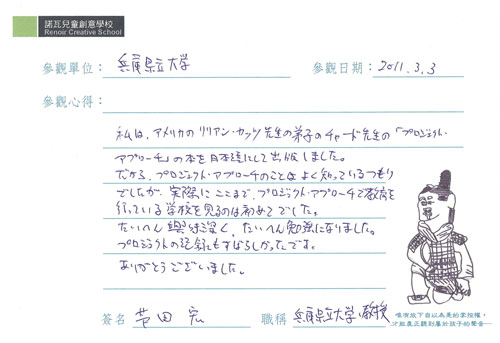 諾瓦兒童創意學校
Renoir Creative School
參觀單位： 兵庫県立大学 參觀日期： 2011.3.3
參觀心得：
私は、アメリカのリリアン・カッツ先生の弟子のチャード先生の「プロジェクト・
アプローチ」の本を日本語にして出版しました。
だから、プロジェクト・アプローチのことはよく知っているつもり
でしたが、実際にここまで、プロジェクト・アプローチで教育を
行っている学校を見るのは初めてでした。
たいへん興味深く、たいへん勉強になりました。
プロジェクトの記録もすばらしかったです。
ありがとうございました。
唯有放下自以為是的掌控權，
才能真正觀到屬於孩子的聲音…
簽名 芦田 宏 職稱 兵庫県立大学、教授